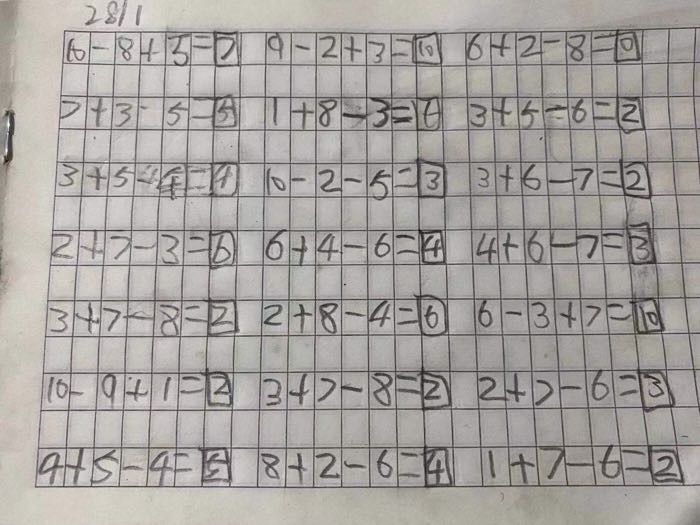 28/1
10-8+5=7 9-2+3=10 6+2-8=0
7+3-5=5 1+8-3=6 3+5-6=2
3+5-4=4 10-2-5=3 3+6-7=2
2+7-3=6 6+4-6=4 4+6-7=3
3+7-8=2 2+8-4=6 6-3+7=10
10-9+1=2 3+7-8=2 2+7-6=3
4+5-4=5 8+2-6=4 1+7-6=2